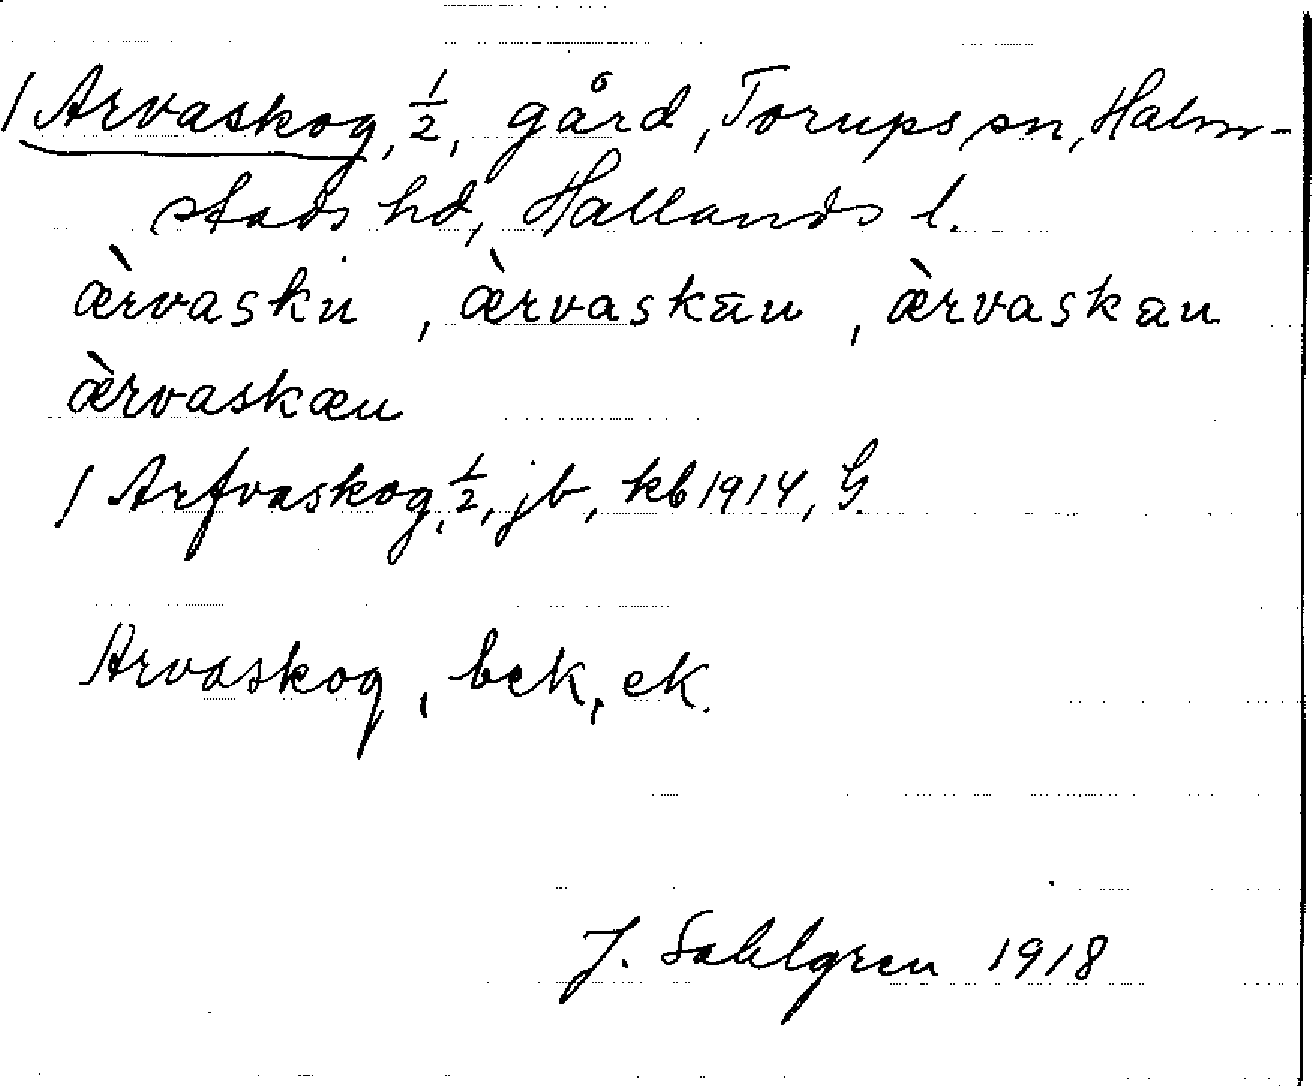 1 Arvaskog, 1/2, gård, Torups sn, Halm-
stads hd, Hallands l.
ærvasku, ærvaskāu, ærvaskau
ærvaskæu
1 Arfvaskog, 1/2, jb, kb 1914, G.
Arvaskog, bek, ek.
J. Sahlgren 1918